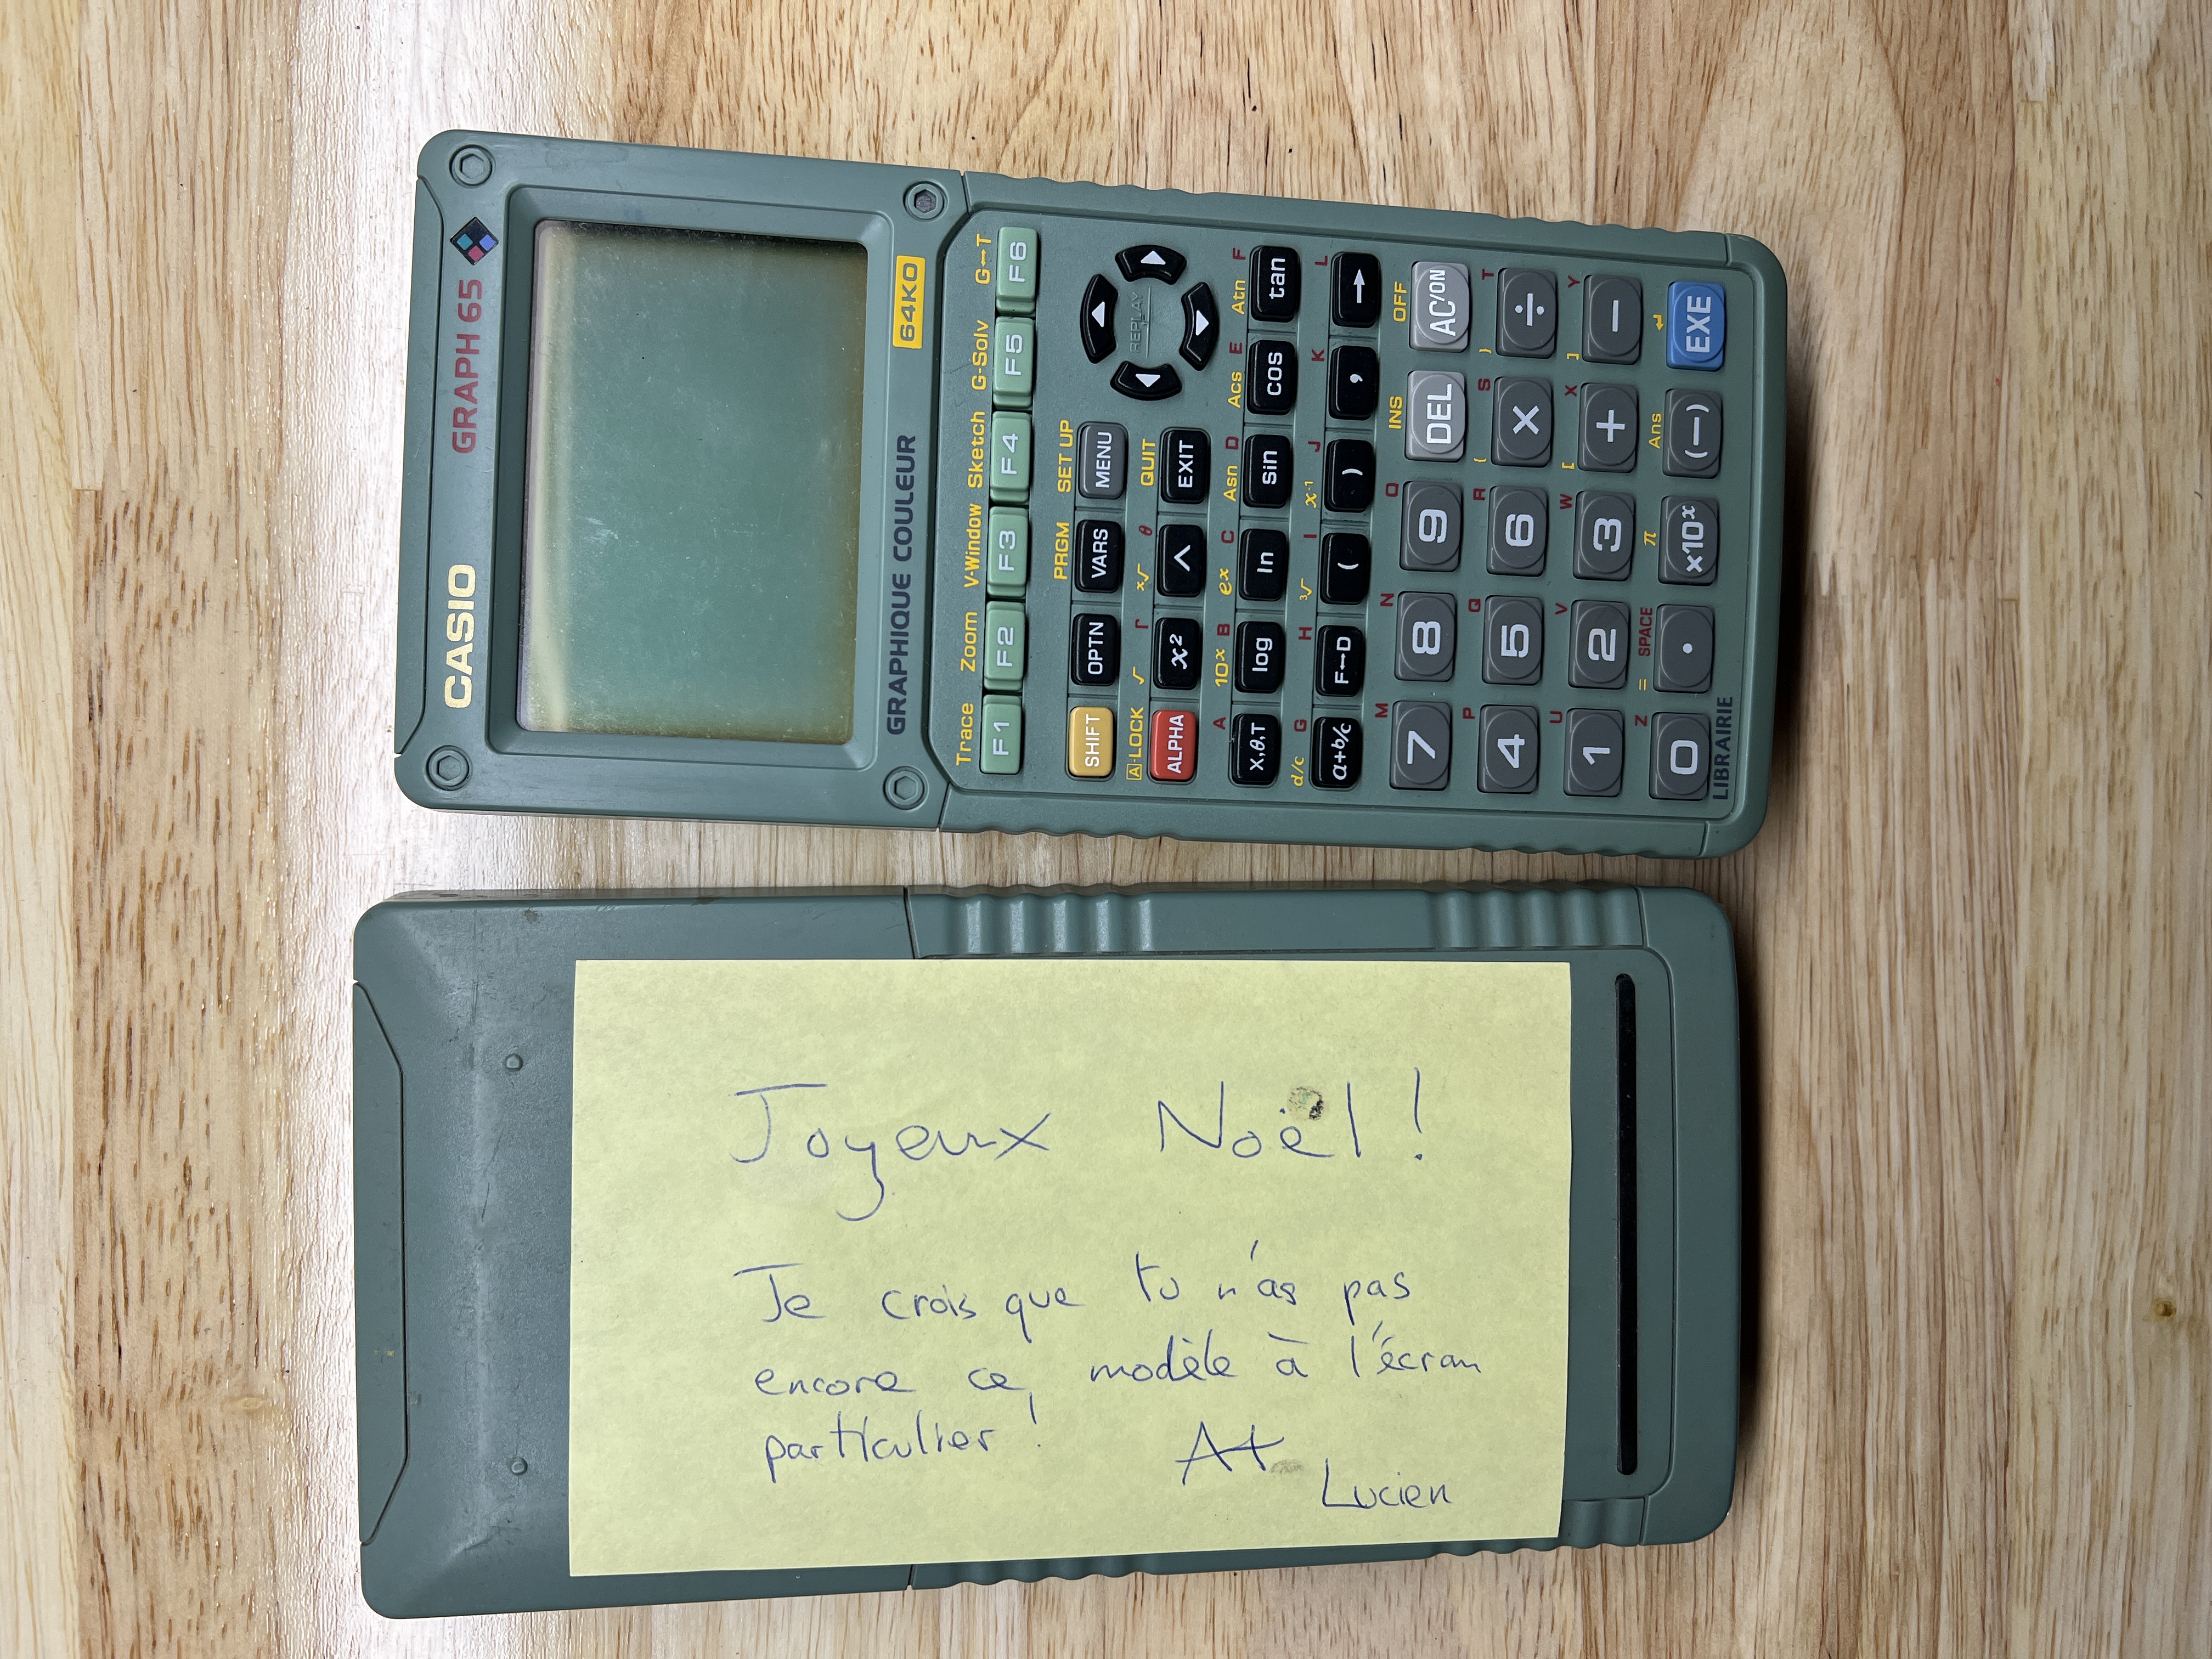 CASIO
GRAPH 65
GRAPHIQUE COULEUR
64KO
Trace Zoom V-Window Sketch G-Solv G↔T
F1 F2 F3 F4 F5 F6
PRGM SET UP
SHIFT OPTN VARS MENU
REPLAY
A-LOCK √ r ˣ√ θ QUIT
ALPHA x² ^ EXIT
A 10ˣ B eˣ C Asn D Acs E Atn F
X,θ,T log ln sin cos tan
d/c G H ³√ I x⁻¹ J K L
a+b/c F↔D ( ) , →
M N O INS OFF
7 8 9 DEL AC/ON
P Q R { S } T
4 5 6 × ÷
U V W [ X ] Y
1 2 3 + −
Z = SPACE π Ans ↵
0 . ×10ˣ (−) EXE
LIBRAIRIE
Joyeux Noël !
Je crois que tu n'as pas
encore ce modèle à l'écran
particulier !
A+
Lucien